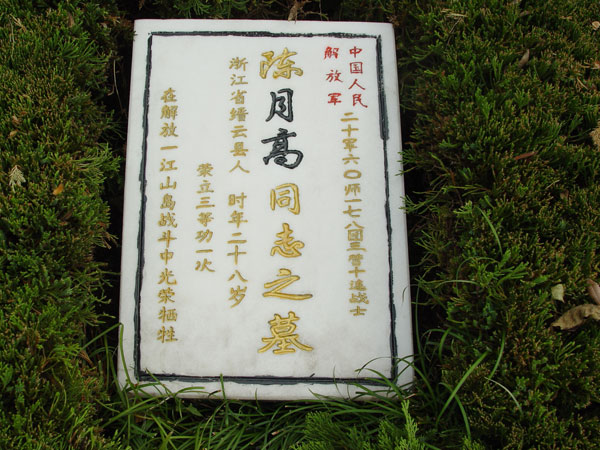 中国人民
解放军
二十军六〇师一七八团三营十連战士
陈月高同志之墓
浙江省缙云县人 时年二十八岁
荣立三等功一次
在解放一江山岛战斗中光荣牺牲